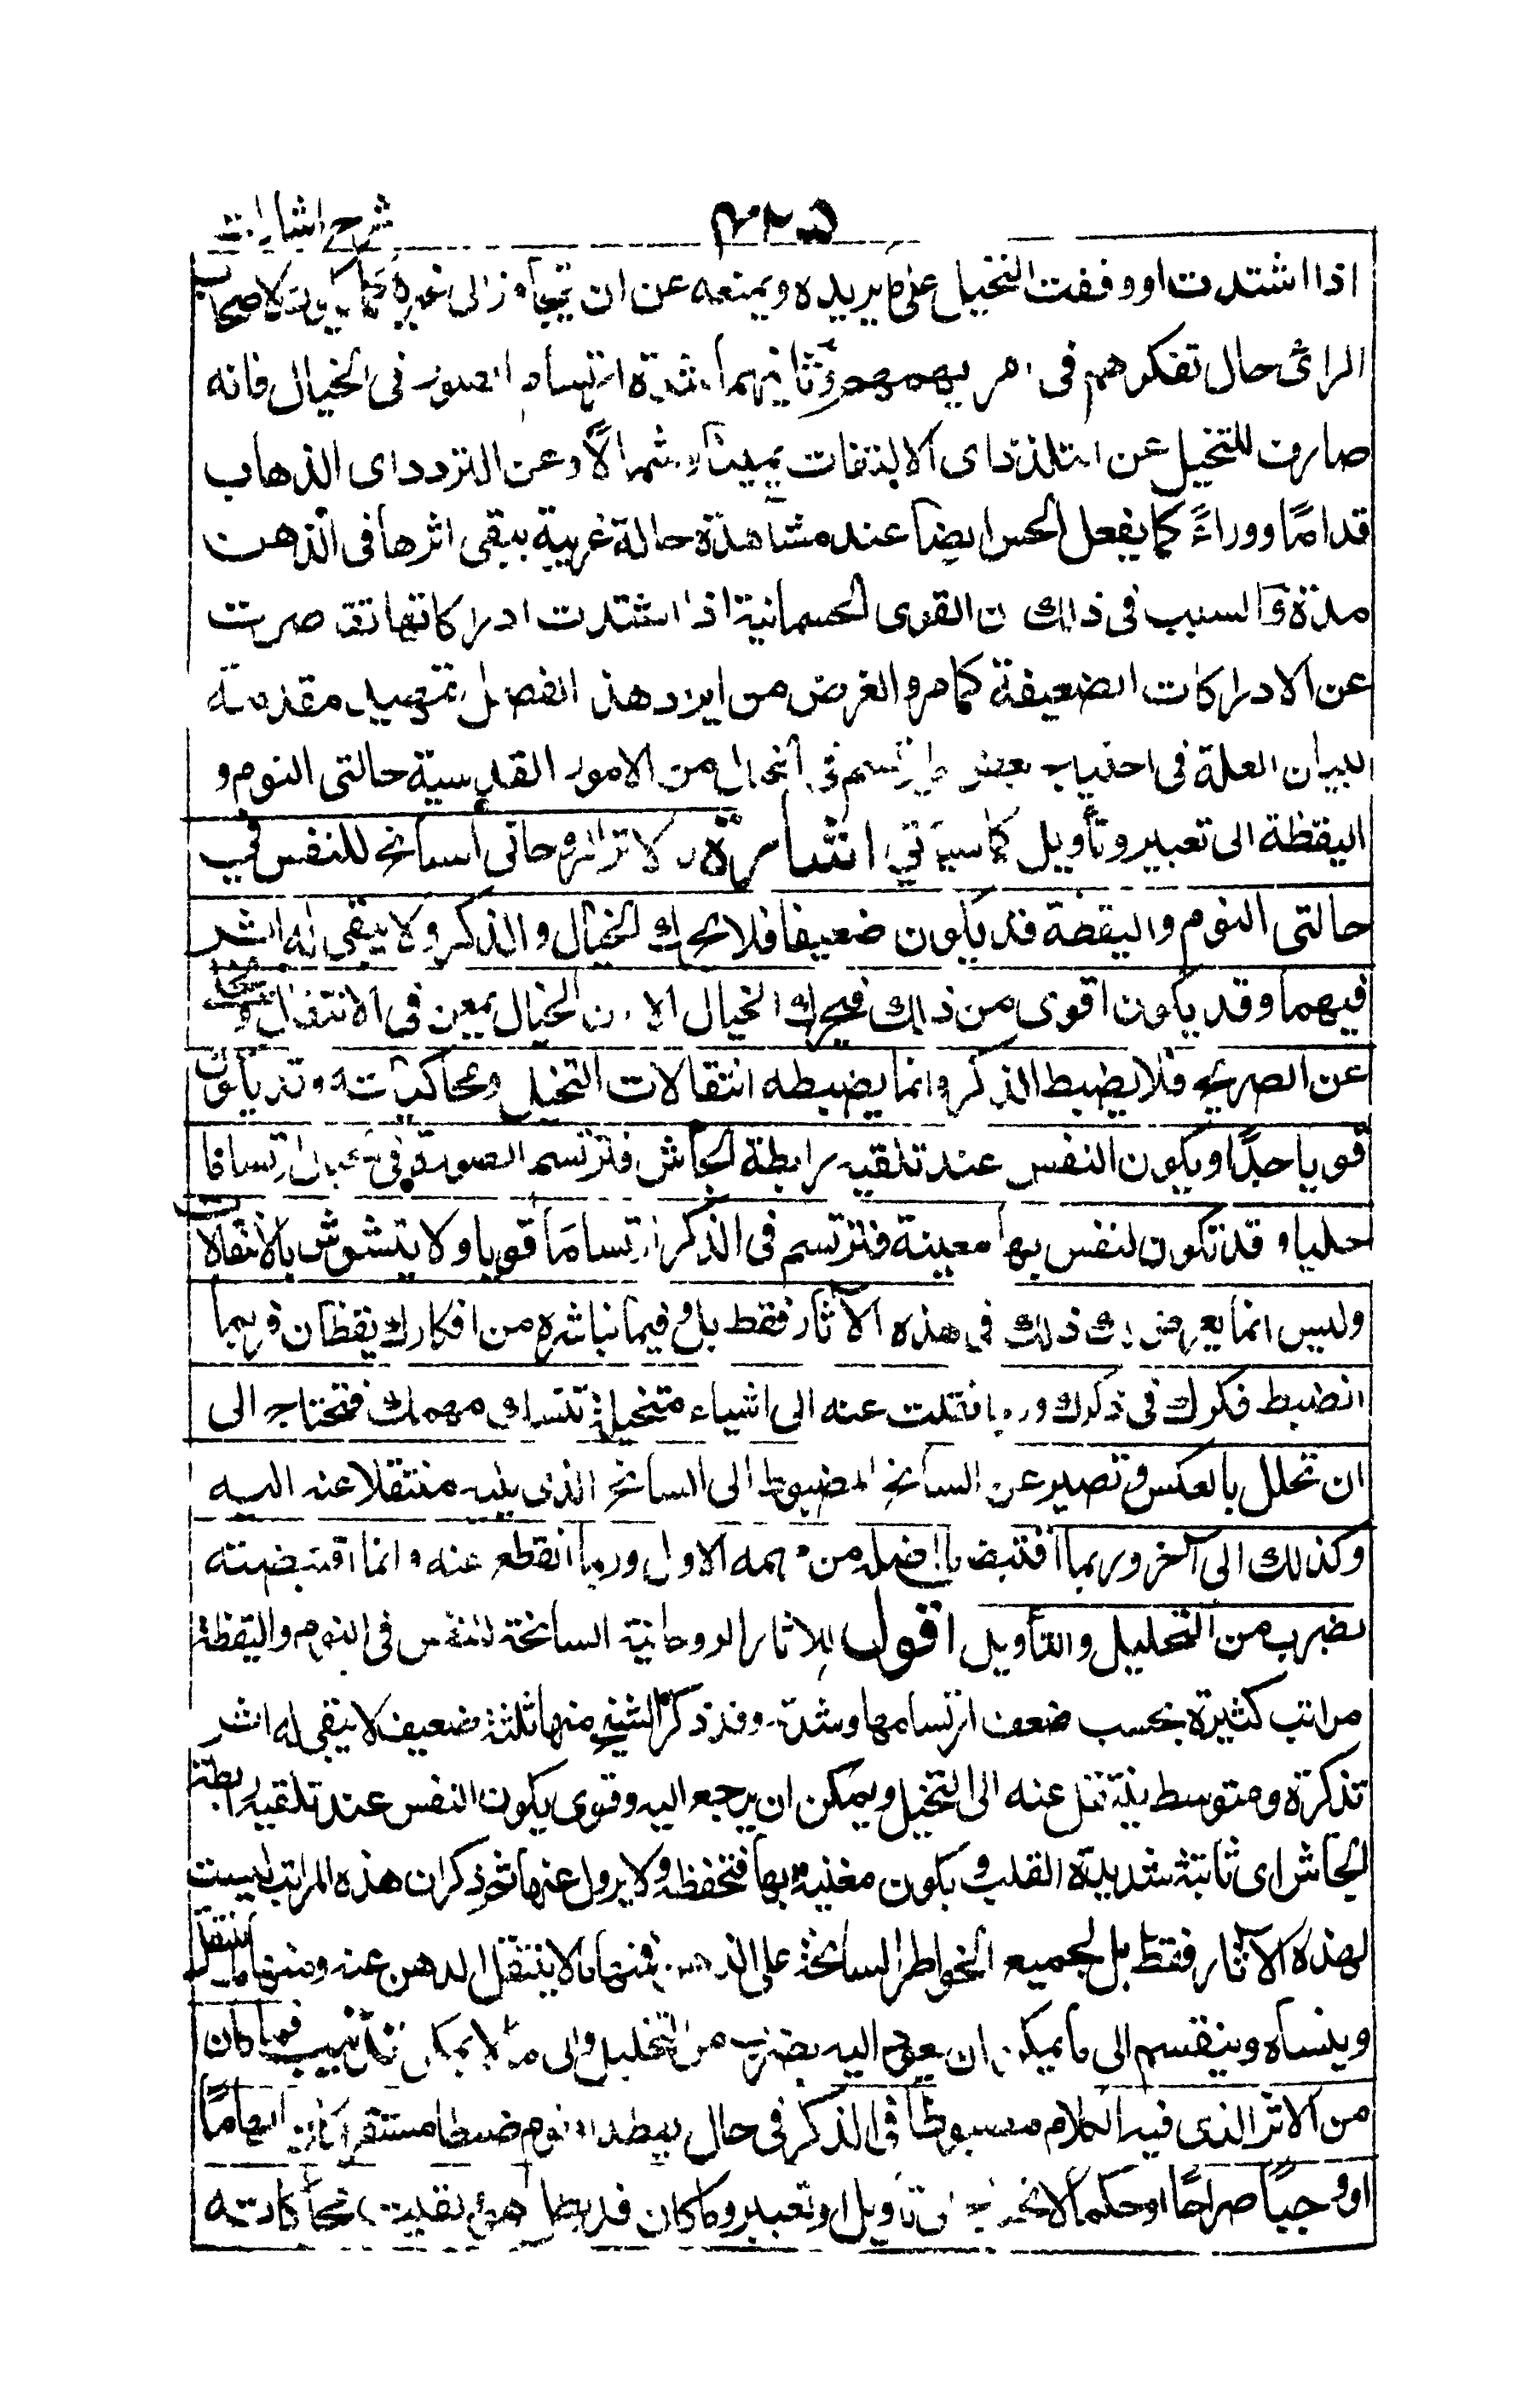 شرح اشارات
٣٢٥
اذا اشتدت اوقفت التخيل على ما يريده ويمنعه عن ان يتجاوز الى غيره كما يكون لاصحاب
الرائى حال تفكرهم فى امر يهمهم وثانيهما شدة ارتسام الصور فى الخيال فانه
صارف للتخيل عن التلذذ اى الالتفات يمينا وشمالًا وعن التردد اى الذهاب
قدامًا ووراءً كما يفعل الحس ايضا عند مشاهدة حالة غريبة يبقى اثرها فى الذهن
مدة والسبب فى ذلك ان القوى الجسمانية اذا اشتدت ادراكاتها تقاصرت
عن الادراكات الضعيفة كما مر والغرض من ايراد هذا الفصل تمهيد مقدمة
لبيان العلة فى احتياج بعض ما يرتسم فى الخيال من الامور القدسية حالتى النوم و
اليقظة الى تعبير وتأويل كما سيأتي اشارة الاثر الروحانى السانح للنفس فى
حالتى النوم واليقظة قد يكون ضعيفا فلا يحرك الخيال والذكر ولا يبقى له اثر
فيهما وقد يكون اقوى من ذلك فيحرك الخيال الا ان الخيال يمعن فى الانتقال و يخلى
عن الصريح فلا يضبط الذكر وانما يضبطه انتقالات التخيل ومحاكياته وقد يكون
قويا جدًّا ويكون النفس عند تلقيه رابطة الجاش فترتسم الصورة فى الخيال ارتساما
جليا وقد تكون النفس بها معينة فترتسم فى الذكر ارتسامًا قويا ولا يتشوش بالانتقالات
وليس انما يعرض لك ذلك فى هذه الآثار فقط بل وفيما تباشره من افكارك يقظان فربما
انضبط فكرك فى ذكرك وربما انتقلت عنه الى اشياء متخيلة تنسيك مهمك فتحتاج الى
ان تحلل بالعكس وتصير عن السانح المضبوط الى السانح الذى يليه منتقلا عنه اليه
وكذلك الى آخر وربما اقتنص ما اضله من مهمه الاول وربما انقطع عنه وانما اقتنصته
بضرب من التحليل والتأويل اقول للاثار الروحانية السانحة للنفس فى النوم واليقظة
مراتب كثيرة بحسب ضعف ارتسامها وشدته وقد ذكر الشيخ منها ثلثة ضعيف لا يبقى له اثر
تذكرة ومتوسط ينتقل عنه الى التخيل ويمكن ان يرجع اليه وقوى يكون النفس عند تلقيه رابطة
الجاش اى ثابتة شديدة القلب ويكون معنية بها فتحفظه ولا يزول عنها ثم ذكر ان هذه المراتب ليست
لهذه الآثار فقط بل لجميع الخواطر السانحة على الذهن فمنها ما لا ينتقل الذهن عنه ومنها ما ينتقل
وينساه وينقسم الى ما يمكن ان يعود اليه بضرب من التحليل والى ما لا يمكن تذنيب فما كان
من الاثر الذى فيه الكلام مضبوطًا فى الذكر فى حال يقظة او نوم ضبطا مستقرا كان الهامًا
او وحيًا صراحًا او حلما لا تحتاج الى تأويل او تعبير وما كان قد بطل هو وبقيت محاكاته